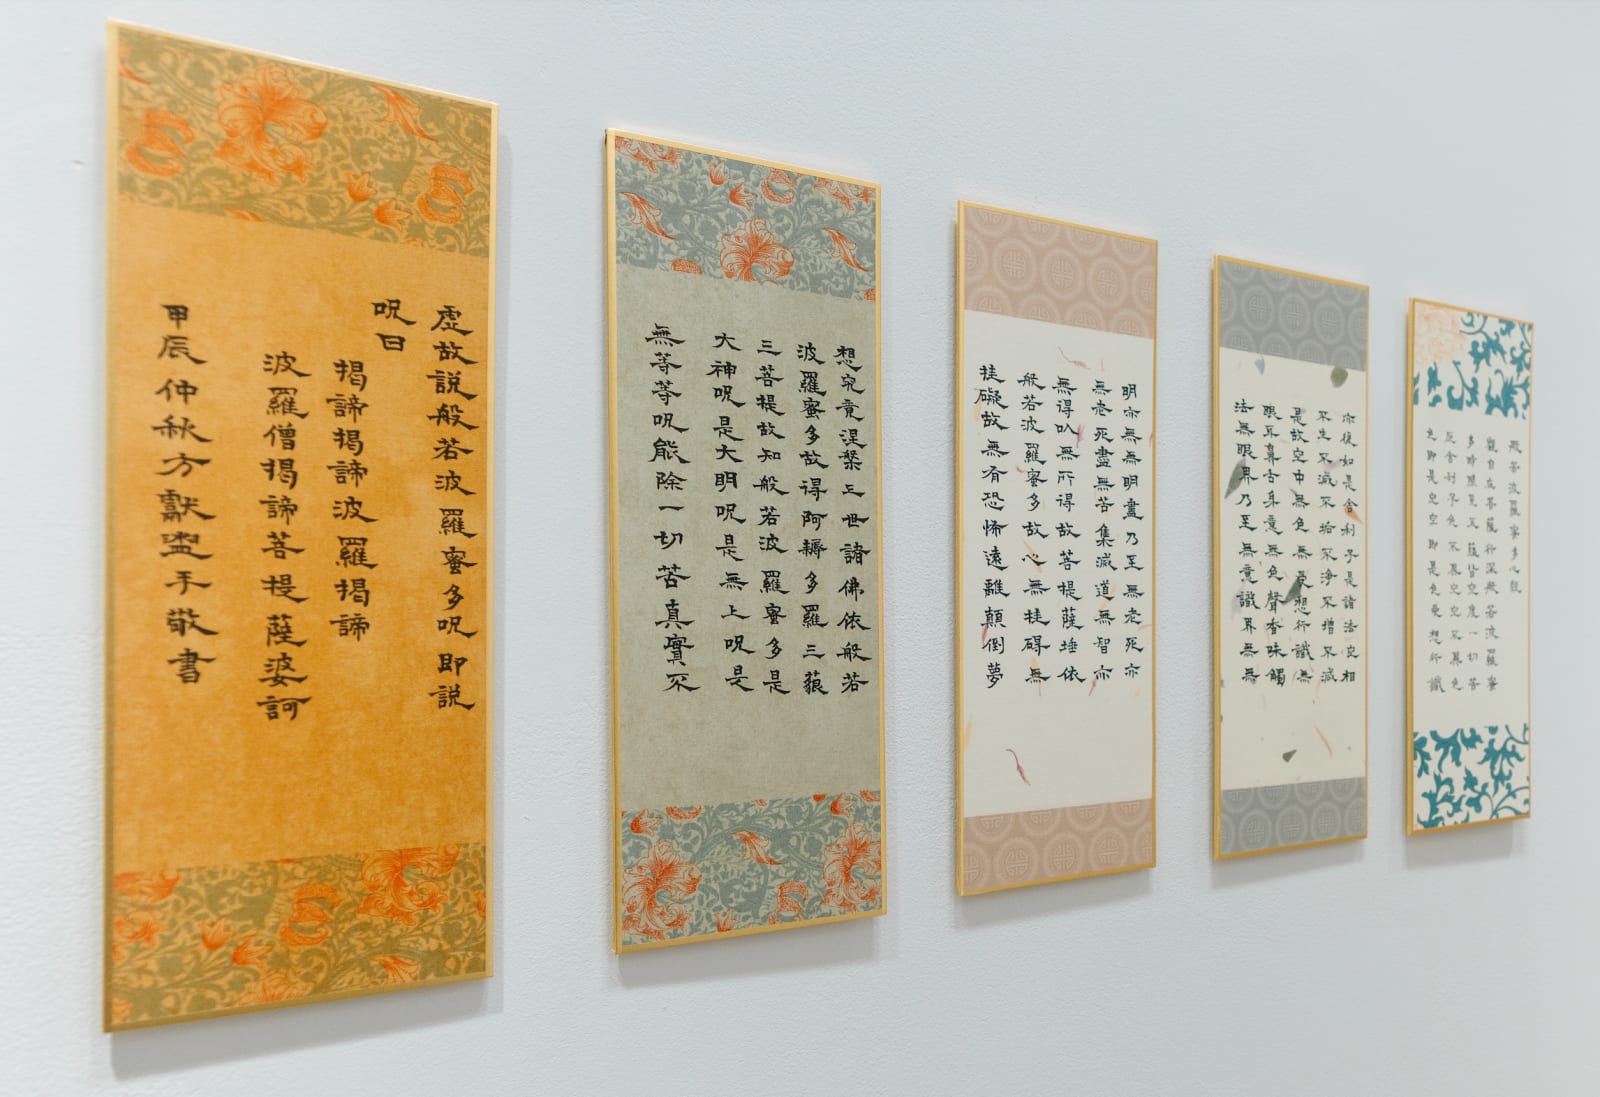 般若波羅蜜多心經
觀自在菩薩行深般若波羅蜜
多時照見五蘊皆空度一切苦
厄舍利子色不異空空不異色
色即是空空即是色受想行識
亦復如是舍利子是諸法空相
不生不滅不垢不淨不增不減
是故空中無色無受想行識無
眼耳鼻舌身意無色聲香味觸
法無眼界乃至無意識界無無
明亦無無明盡乃至無老死亦
無老死盡無苦集滅道無智亦
無得以無所得故菩提薩埵依
般若波羅蜜多故心無挂碍無
挂礙故無有恐怖遠離顛倒夢
想究竟涅槃三世諸佛依般若
波羅蜜多故得阿耨多羅三藐
三菩提故知般若波羅蜜多是
大神呪是大明呪是無上呪是
無等等呪能除一切苦真實不
虛故説般若波羅蜜多呪即説
呪曰
揭諦揭諦波羅揭諦
波羅僧揭諦菩提薩婆訶
甲辰仲秋方獻盥手敬書